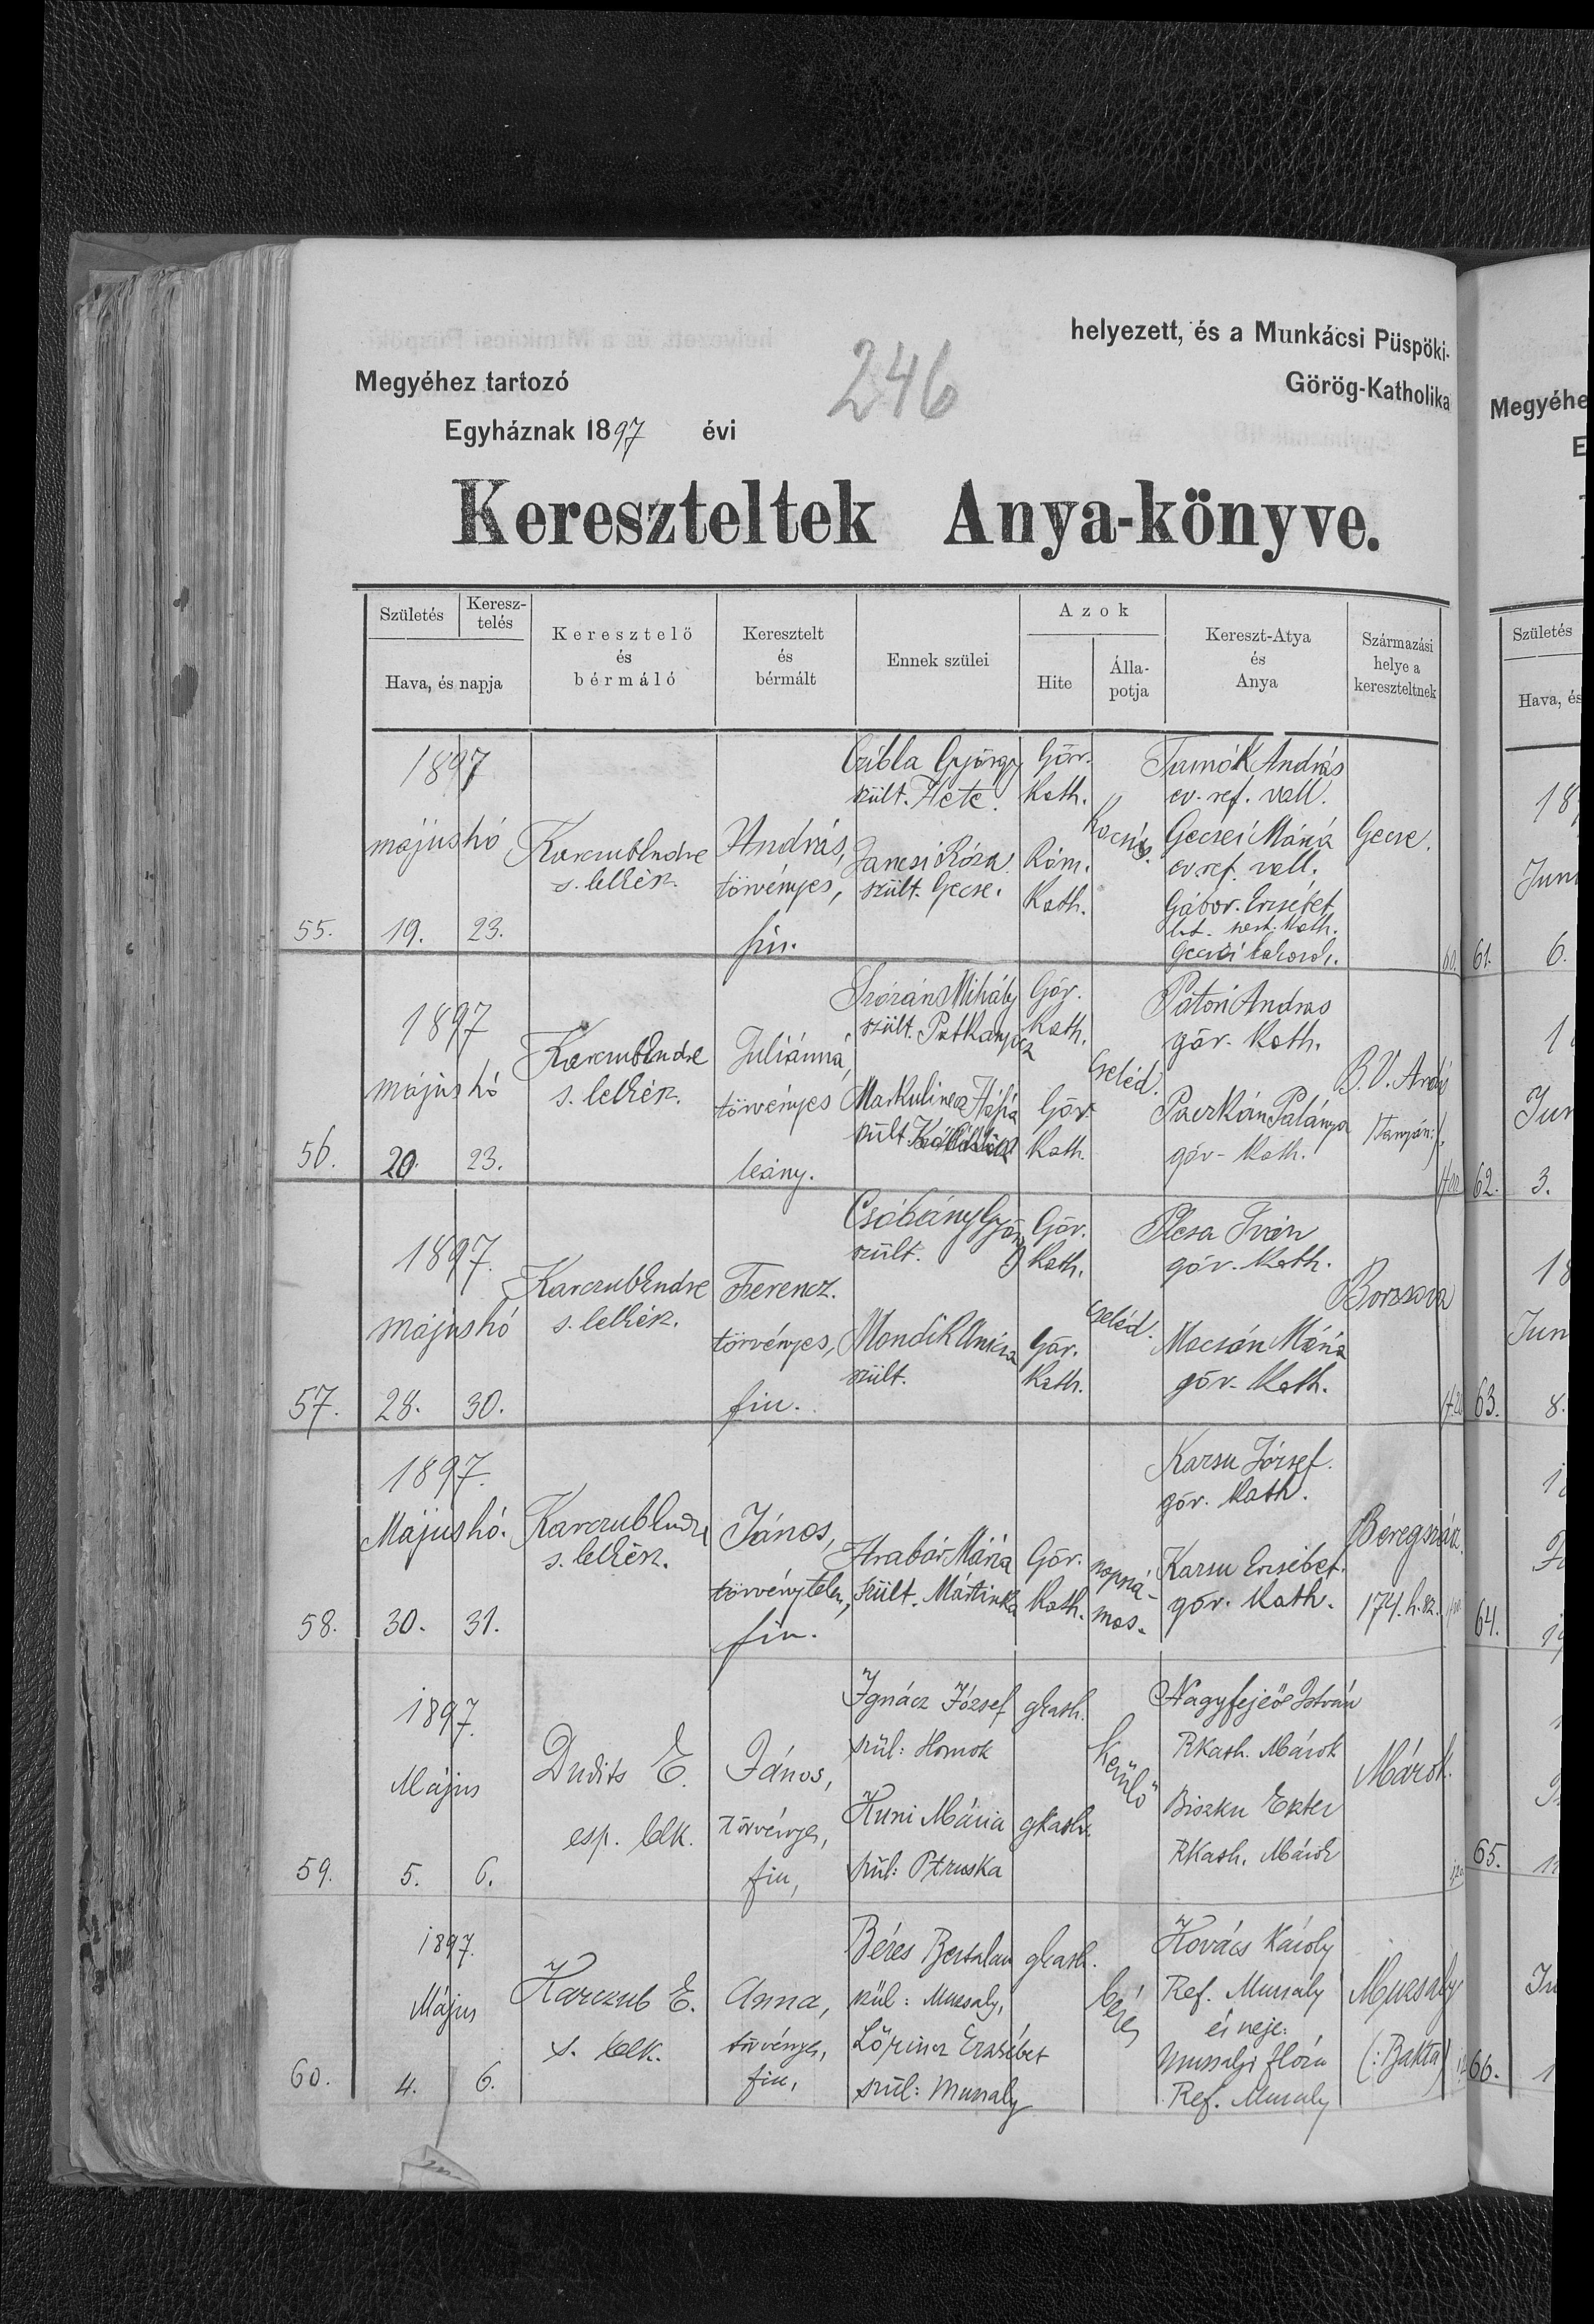 helyezett, és a Munkácsi Püspöki-
Megyéhez tartozó
246
Görög-Katholika
Egyháznak 1897 évi
Kereszteltek Anya-könyve.
Születés
Keresz-
telés
Hava, és napja
Keresztelő
és
bérmáló
Keresztelt
és
bérmált
Ennek szülei
Azok
Hite
Álla-
potja
Kereszt-Atya
és
Anya
Származási
helye a
kereszteltnek
55.
1897
május hó
19. 23.
Karczub Endre
s. lelkész.
András,
törvényes,
fiu.
Czibla György
szült. Hete.
Jancsi Róza
szült. Gecse.
Gör.
Kath.
Róm.
Kath.
Kocsis.
Tamók András
ev. ref. vall.
Gecsei Mária
ev. ref. vall.
Gábor Erzsébet
Gecse.
56.
1897
május hó
20. 23.
Karczub Endre
s. lelkész.
Juliánná,
törvényes
leány.
Mihály
szült. Patkanyócz
Markulinecz
szült.
Gör.
Kath.
Gör.
Kath.
cseléd.
Andras
gör. Kath.
Paczkán Palánya
gör. Kath.
B. V. Ardó
57.
1897.
május hó
28. 30.
Karczub Endre
s. lelkész.
Ferencz.
törvényes,
fiu.
szült.
Mondik Anicza
szült.
Gör.
Kath.
Gör.
Kath.
cseléd.
Plesa Iván
gör. Kath.
Macsán Mária
gör. Kath.
Borzsova
58.
1897.
Május hó.
30. 31.
Karczub Endre
s. lelkész.
János,
törvénytelen,
fiu.
Hrabár Mária
szült. Mártinka
Gör.
Kath.
napszá-
mos.
Karsu József.
gör. Kath.
Karsu Erzsébet.
gör. Kath.
Beregszász.
174. h. sz.
59.
1897.
Május
5. 6.
Dudits E.
esp. lelk.
János,
törvényes,
fiu,
Ignácz József
szül: Homok
Kuni Mária
szül: Ptruska
gkath.
gkath.
Kerülő
Nagyfejeő István
Rkath. Márok
Biszku Eszter
Rkath. Márok
Márok.
60.
1897.
Május
4. 6.
Karczub E.
s. lelk.
Anna,
törvényes,
fiu,
Béres Bertalan
szül: Muzsaly,
Lőrincz Erzsébet
szül: Muzsaly
gkath.
béres
Kovács Károly
Ref. Muzsaly
és neje:
Muzsalyi Flóra
Ref. Muzsaly
Muzsaly
(: Bakta)
Megyéhe
Születés
Hava, és
61.
6.
62.
3.
63.
8.
64.
65.
66.